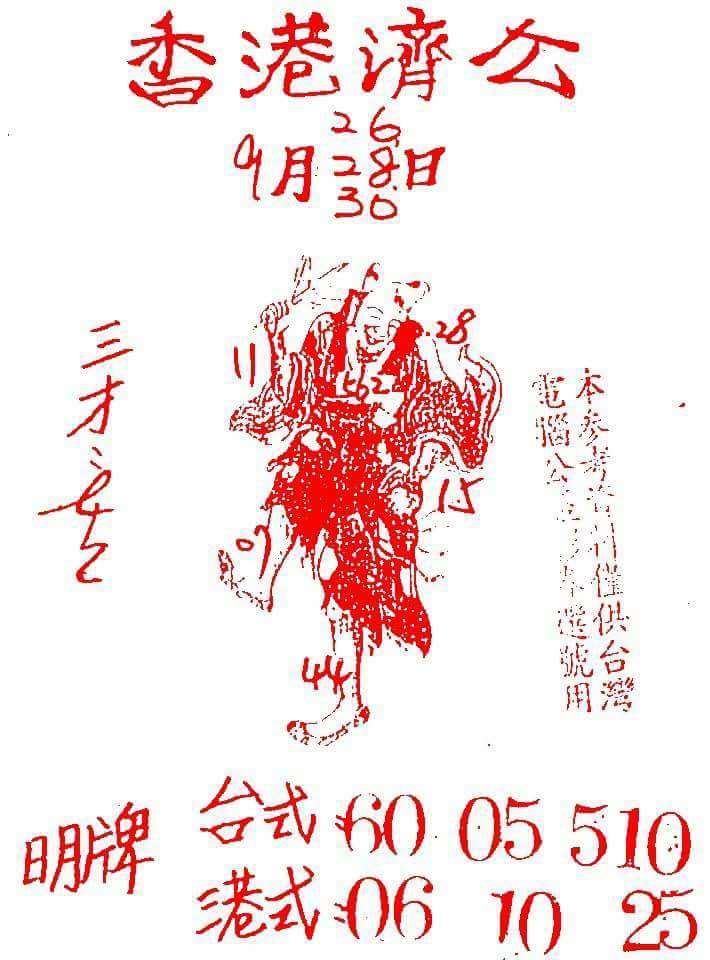 香港濟公
9月26日
28
30
三才
11
28
15
07
44
本參考資料僅供台灣
電腦公益彩券選號用
明牌
台式:60 05 510
港式:06 10 25